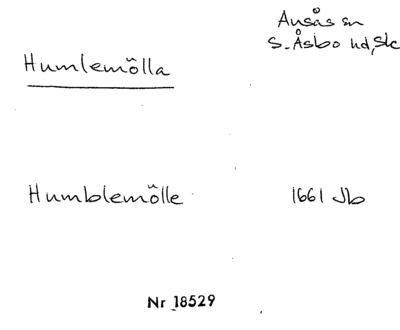 Ausås sn
S. Åsbo hd, Sk
Humlemölla
Humblemölle 1661 Jb
Nr 18529